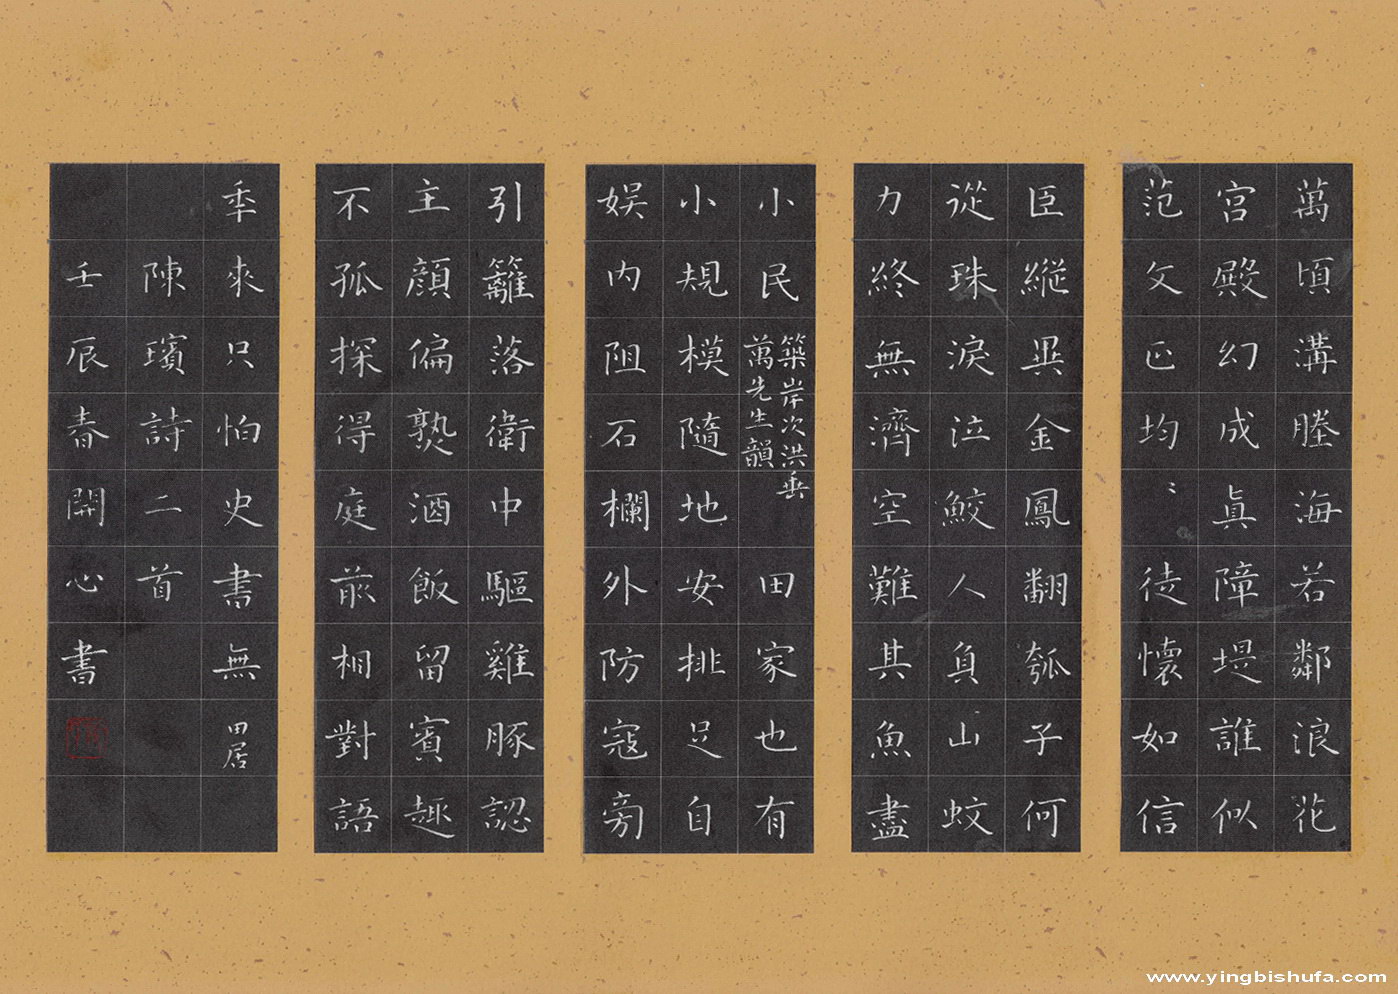 萬頃溝塍海若鄰浪花
宮殿幻成真障堤誰似
范文正均〻徒懷如信
臣縱異金鳳翻瓠子何
從珠淚泣鮫人負山蚊
力終無濟空難其魚盡
小民
築岸次洪垂
萬先生韻
田家也有
小小規模隨地安排足自
娛內阻石欄外防寇旁
引籬落衛中驅雞豚認
主顏偏熟酒飯留賓趣
不孤探得庭前相對語
年來只怕史書無
田居
陳璸詩二首
壬辰春開心書
www.yingbishufa.com